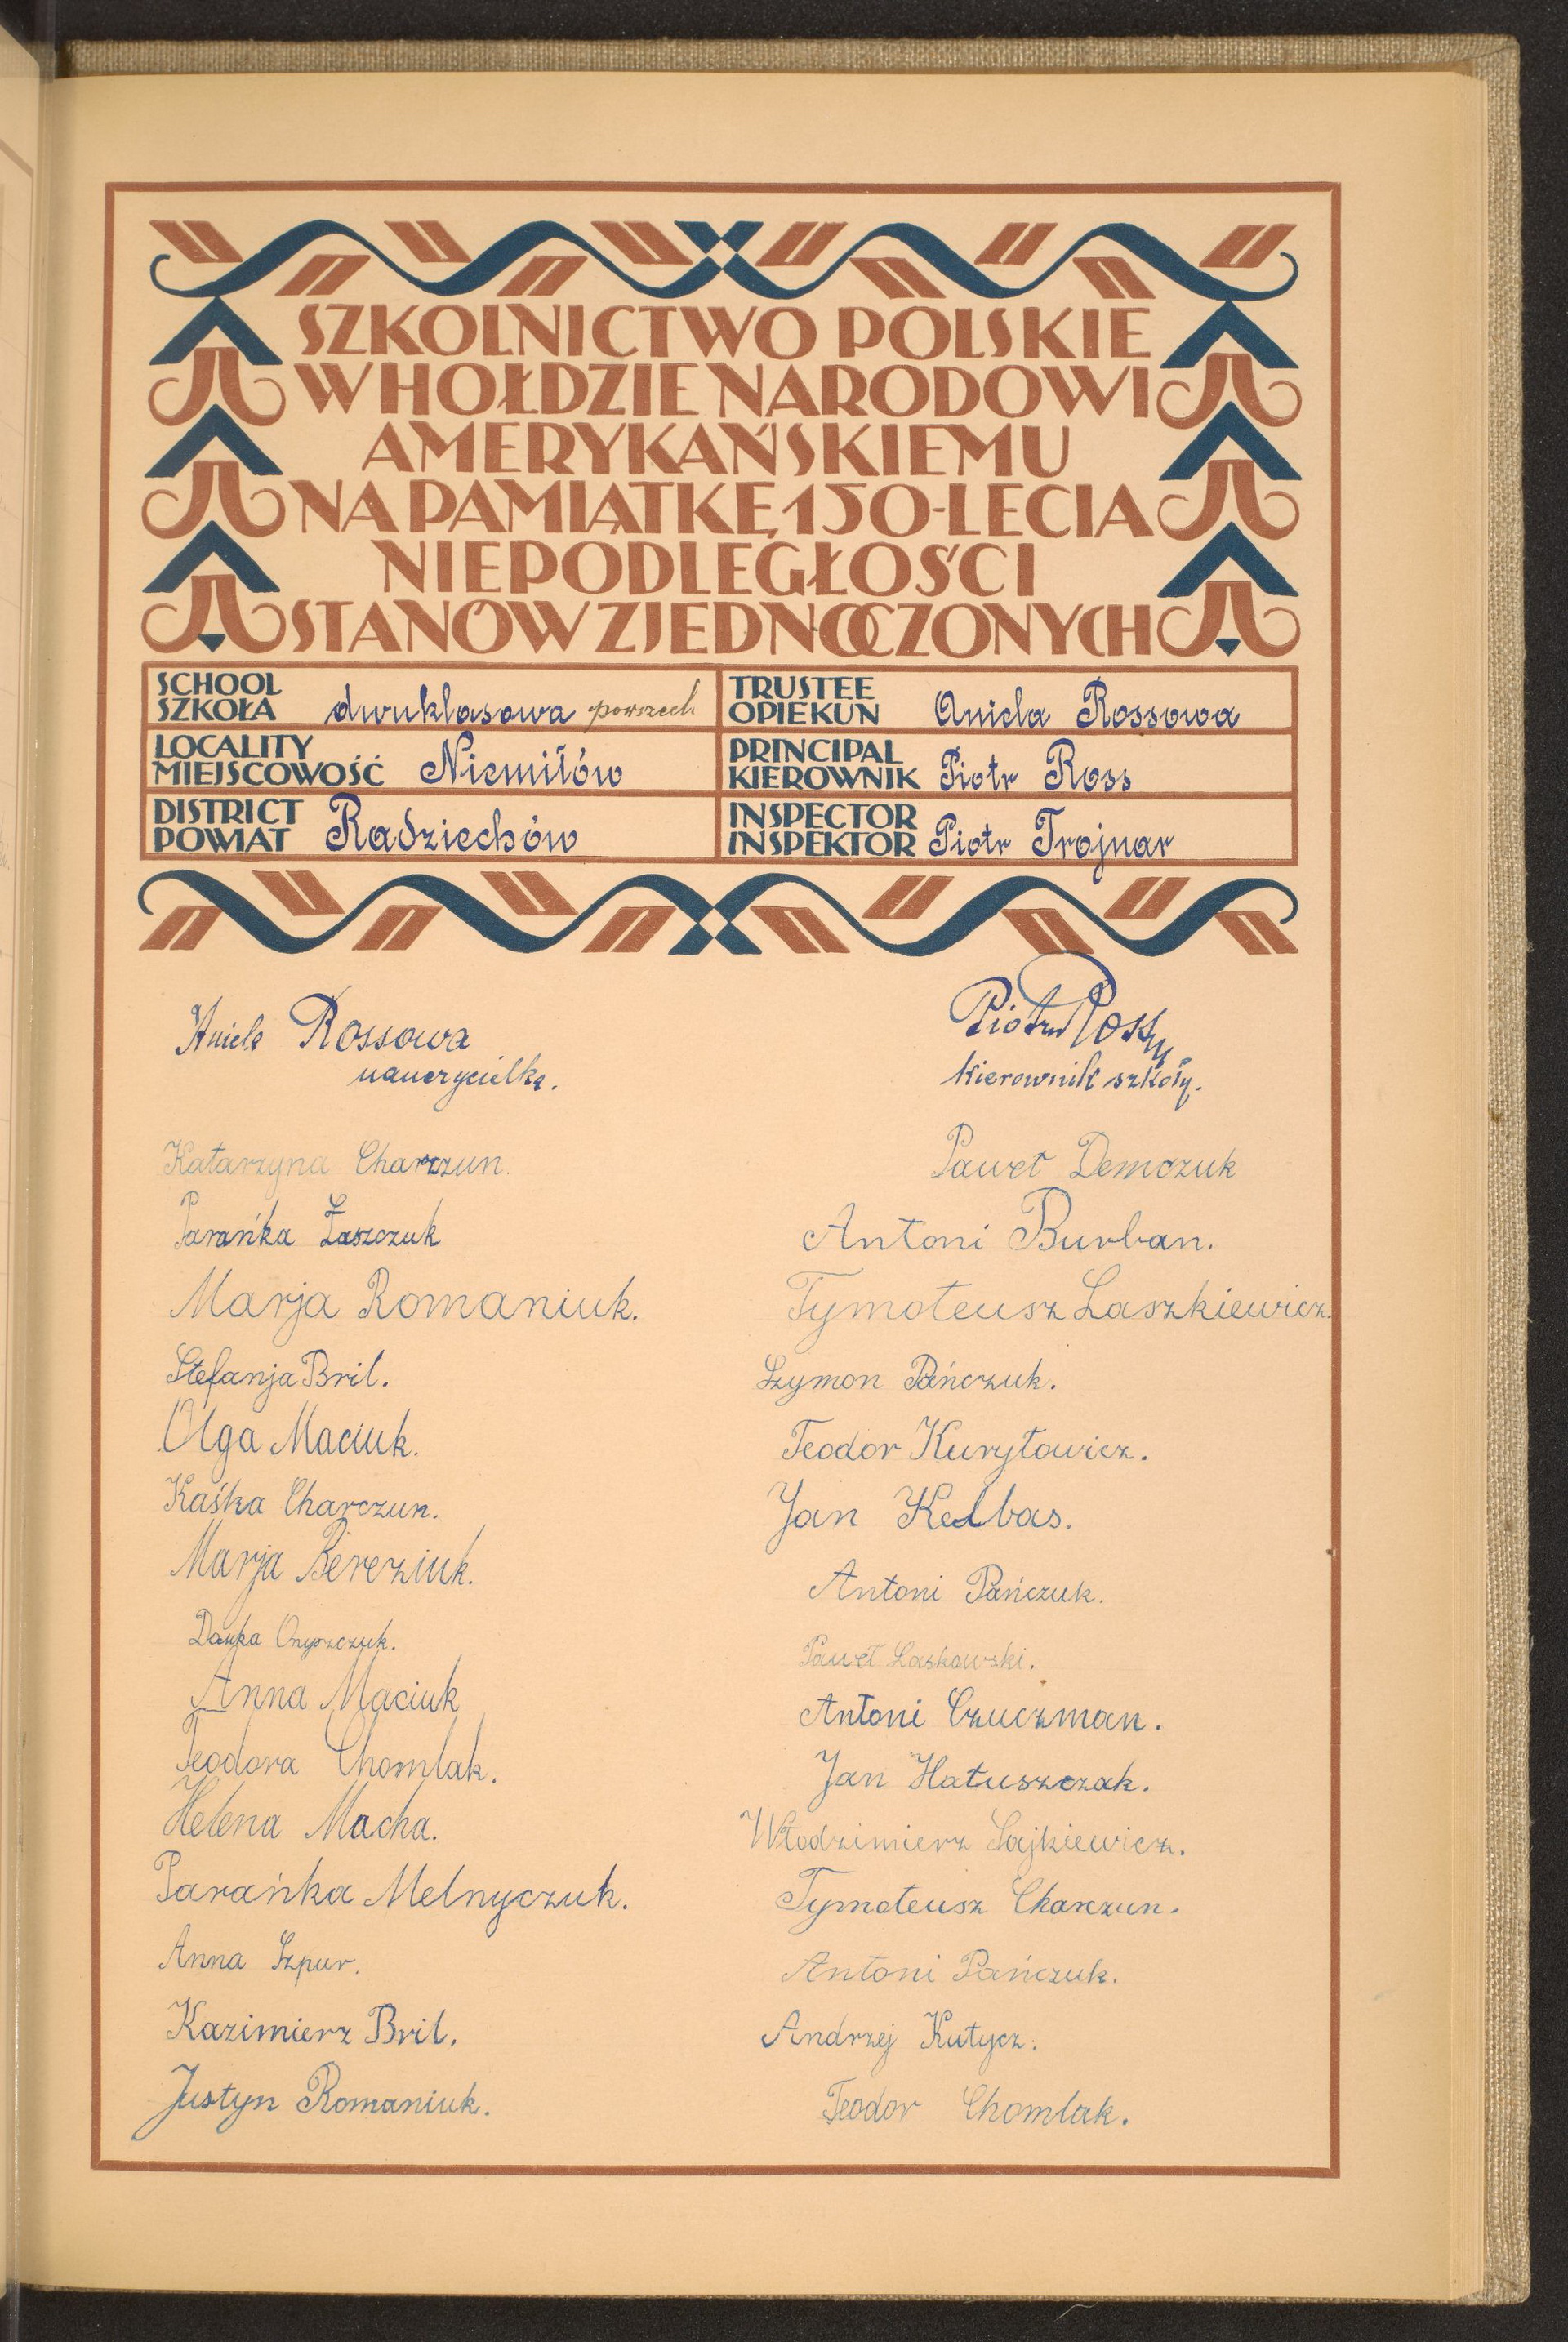 SZKOLNICTWO POLSKIE
W HOŁDZIE NARODOWI
AMERYKAŃSKIEMU
NA PAMIĄTKĘ 150-LECIA
NIEPODLEGŁOŚCI
STANÓW ZJEDNOCZONYCH
SCHOOL
SZKOŁA dwuklasowa powszech.
LOCALITY
MIEJSCOWOŚĆ Niemiłów
DISTRICT
POWIAT Radziechów
TRUSTEE
OPIEKUN Aniela Rossowa
PRINCIPAL
KIEROWNIK Piotr Ross
INSPECTOR
INSPEKTOR Piotr Trojnar
Aniela Rossowa
nauczycielka.
Katarzyna Charczun.
Parańka Łaszczuk
Marja Romaniuk.
Stefanja Bril.
Olga Maciuk.
Kaśka Charczun.
Marja Bereziuk.
Onyszczuk.
Anna Maciuk
Teodora Chomlak.
Helena Macha.
Parańka Melnyczuk.
Anna Szpur.
Kazimierz Bril.
Justyn Romaniuk.
Piotr Ross
kierownik szkoły.
Paweł Demczuk
Antoni Burban.
Tymoteusz Laszkiewicz.
Szymon Pańczuk.
Teodor Kuryłowicz.
Jan Kelbas.
Antoni Pańczuk.
Paweł Laskowski.
Antoni Czuczman.
Jan Hałuszczak.
Włodzimierz Sajkiewicz.
Tymoteusz Charczun.
Antoni Pańczuk.
Andrzej Kutycz.
Teodor Chomlak.